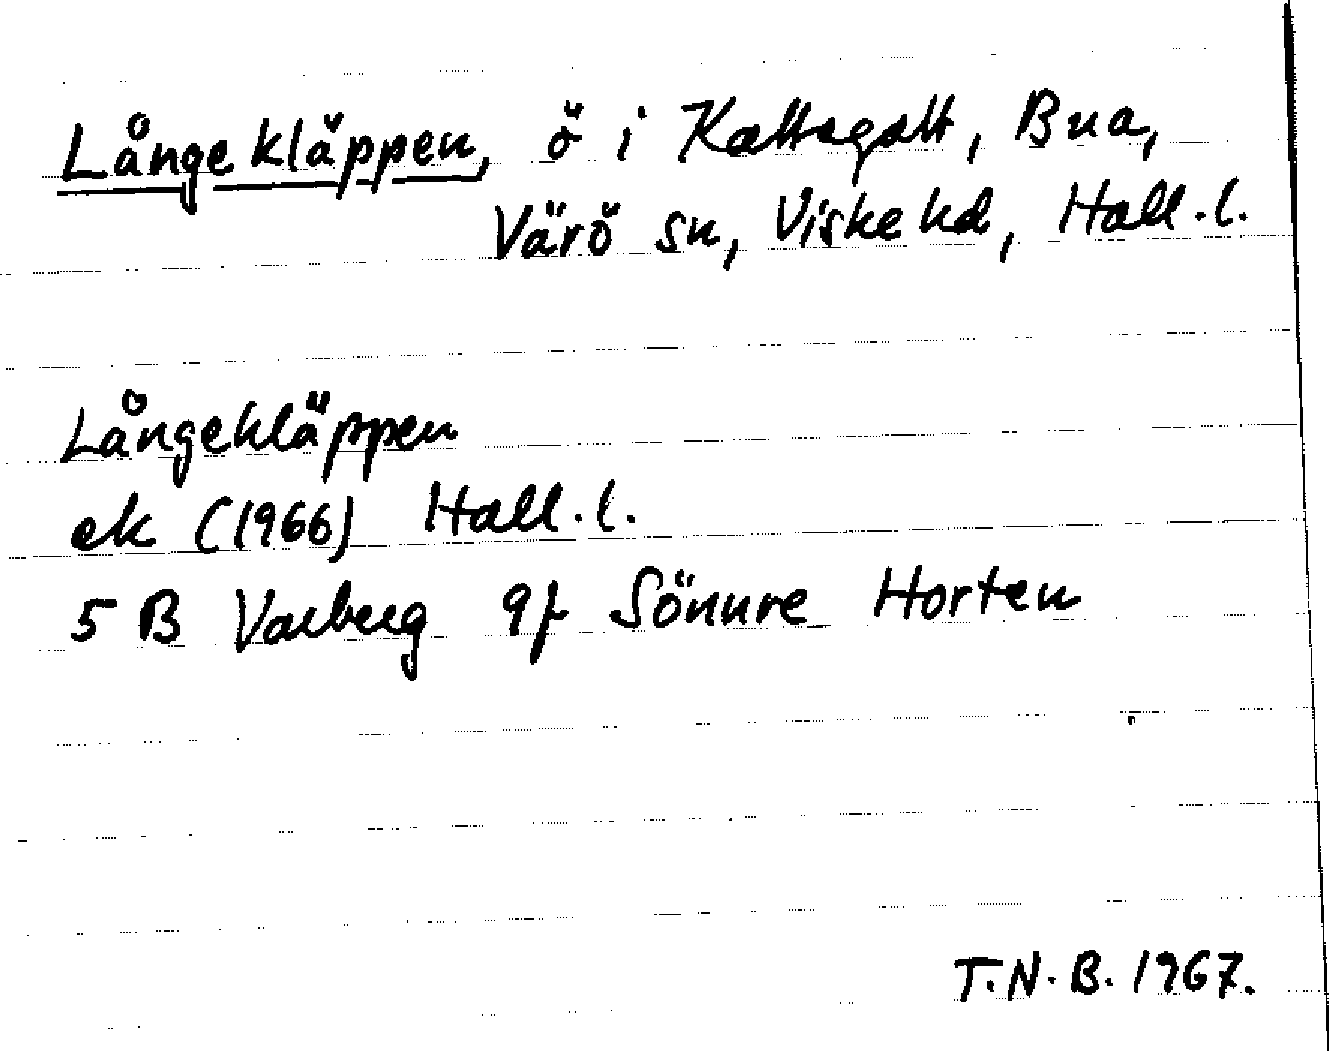 Långekläppen, ö i Kattegatt, Bua,
Värö sn, Viske hd, Hall.l.
Långekläppen
ek (1966) Hall.l.
5 B Varberg 9f Sönnre Horten
T.N.B. 1967.